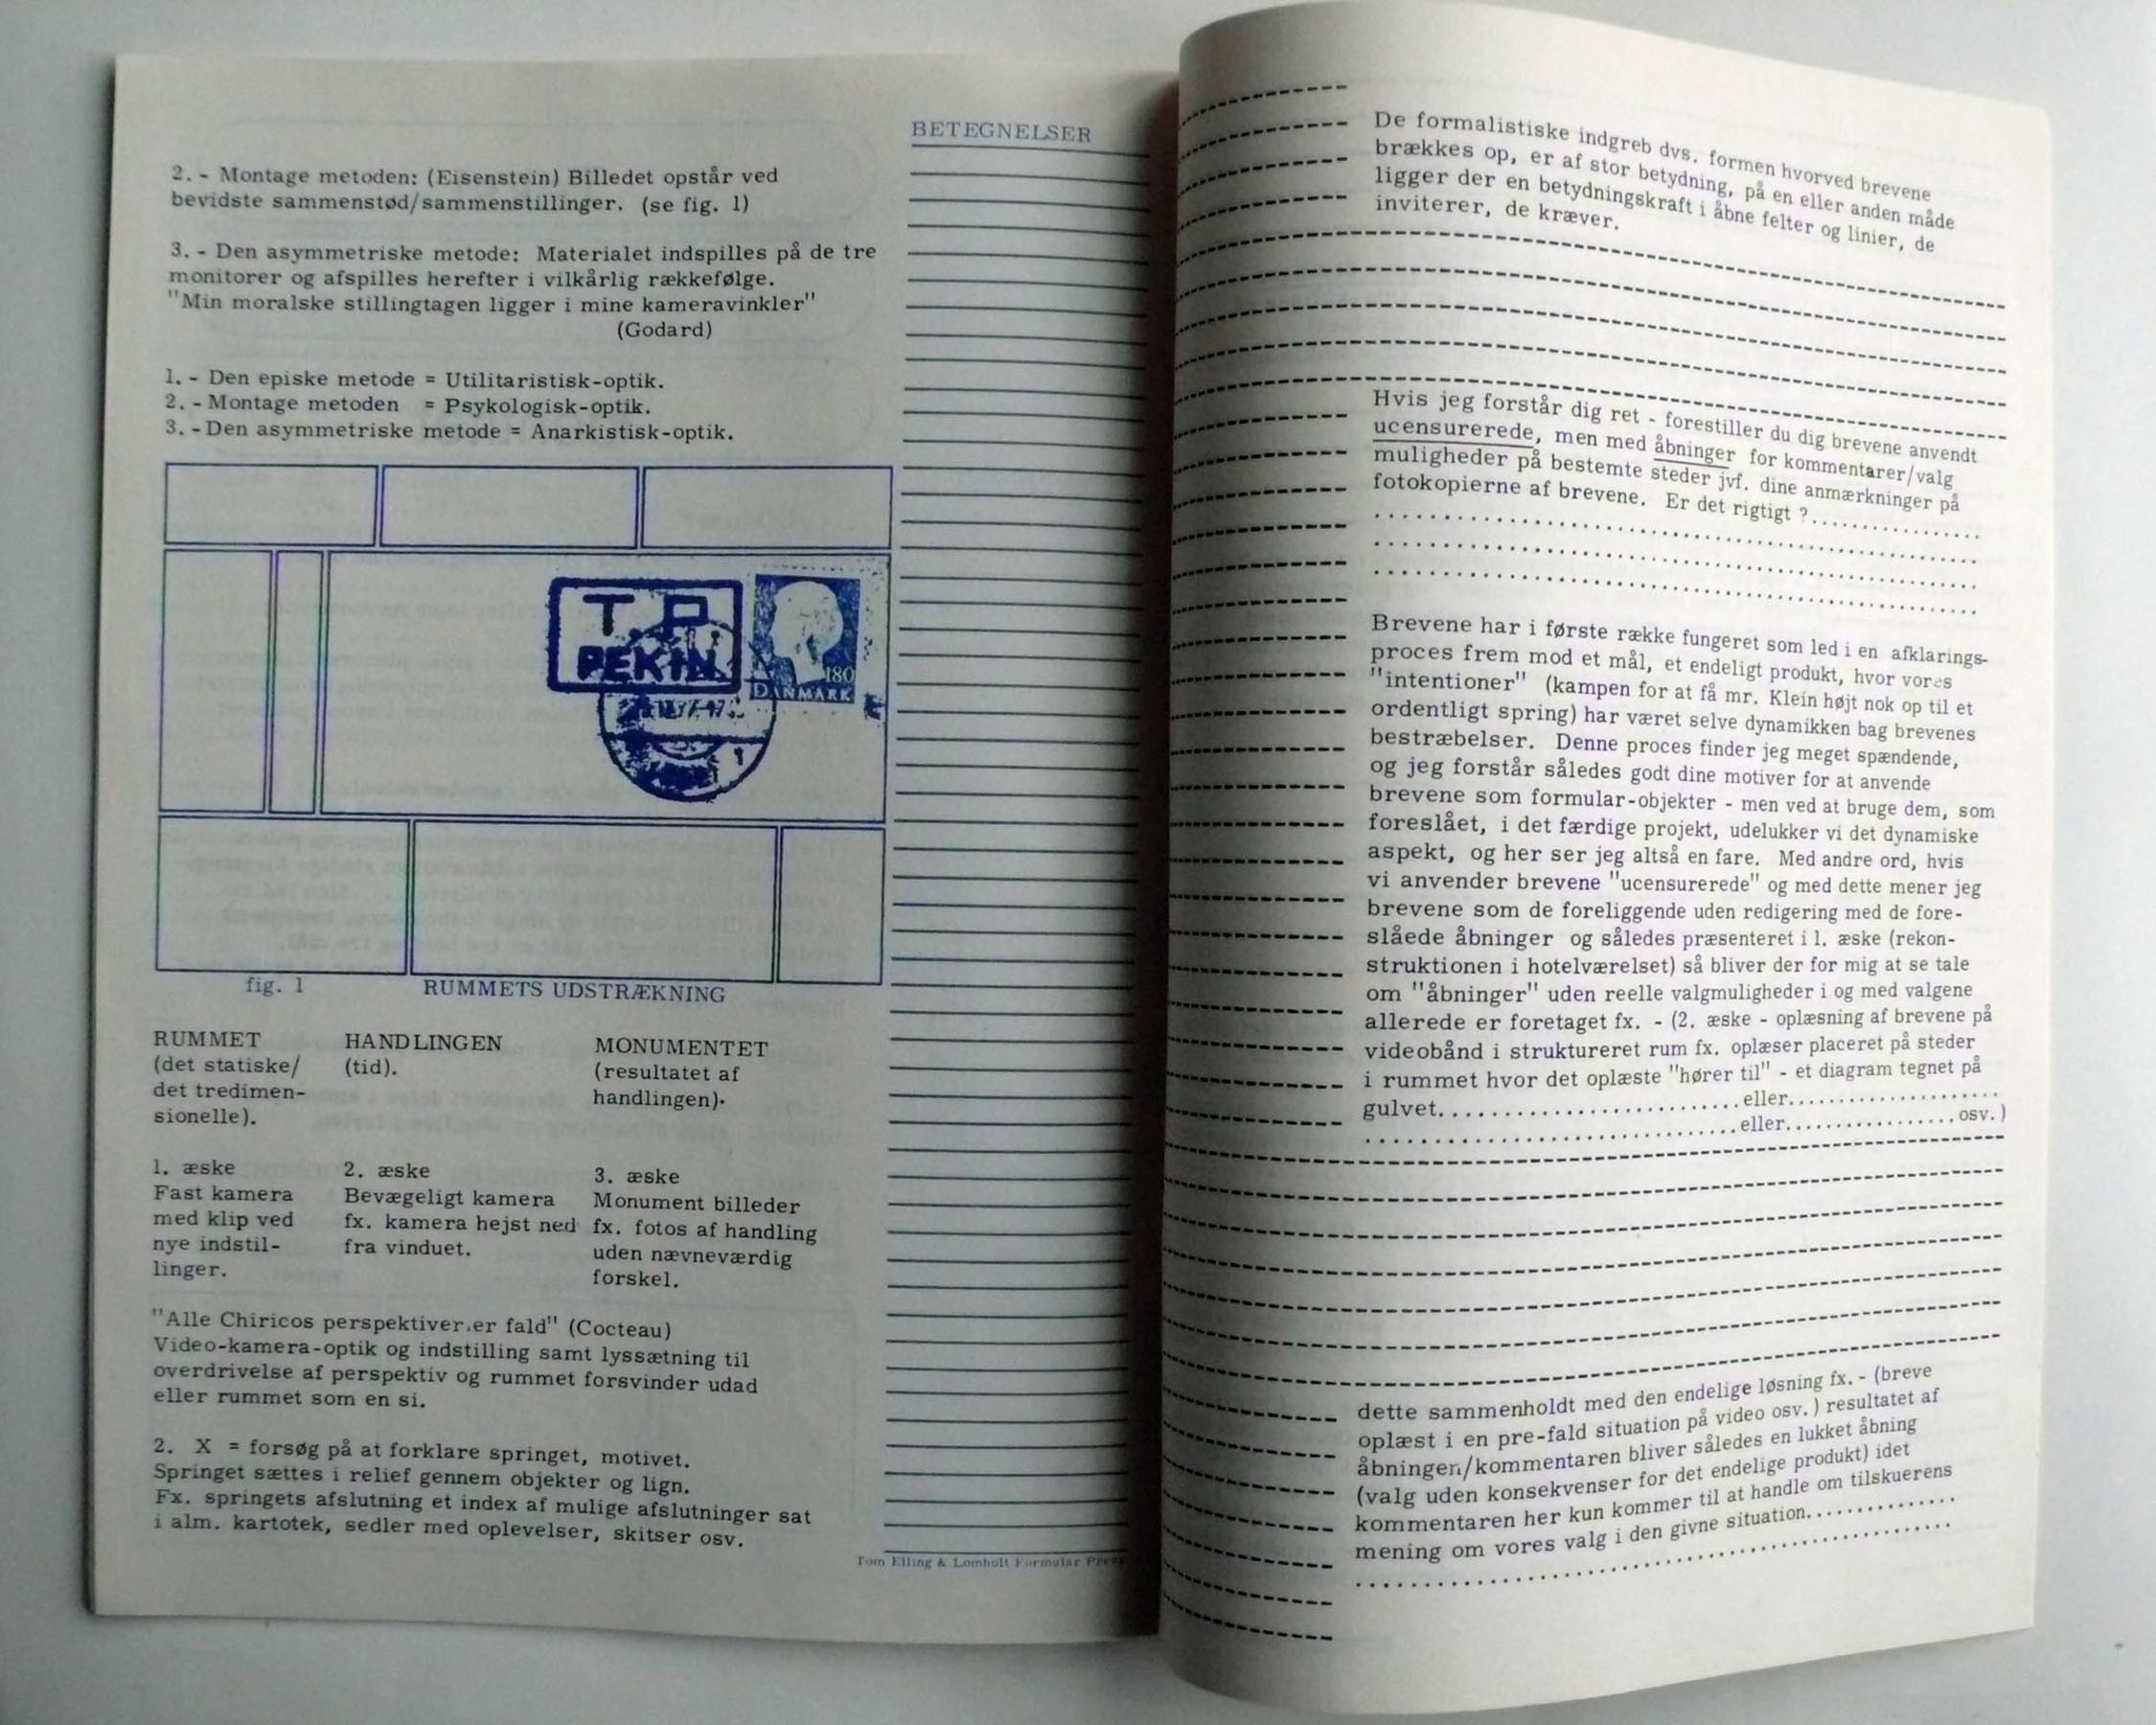 BETEGNELSER
2. - Montage metoden: (Eisenstein) Billedet opstår ved
bevidste sammenstød/sammenstillinger. (se fig. 1)
3. - Den asymmetriske metode: Materialet indspilles på de tre
monitorer og afspilles herefter i vilkårlig rækkefølge.
"Min moralske stillingtagen ligger i mine kameravinkler"
(Godard)
1. - Den episke metode = Utilitaristisk-optik.
2. - Montage metoden = Psykologisk-optik.
3. - Den asymmetriske metode = Anarkistisk-optik.
T.P
PEKIN
180
DANMARK
fig. 1
RUMMETS UDSTRÆKNING
RUMMET
(det statiske/
det tredimen-
sionelle).
HANDLINGEN
(tid).
MONUMENTET
(resultatet af
handlingen).
1. æske
Fast kamera
med klip ved
nye indstil-
linger.
2. æske
Bevægeligt kamera
fx. kamera hejst ned
fra vinduet.
3. æske
Monument billeder
fx. fotos af handling
uden nævneværdig
forskel.
"Alle Chiricos perspektiver.er fald" (Cocteau)
Video-kamera-optik og indstilling samt lyssætning til
overdrivelse af perspektiv og rummet forsvinder udad
eller rummet som en si.
2. X = forsøg på at forklare springet, motivet.
Springet sættes i relief gennem objekter og lign.
Fx. springets afslutning et index af mulige afslutninger sat
i alm. kartotek, sedler med oplevelser, skitser osv.
Tom Elling & Lomholt Formular Press
De formalistiske indgreb dvs. formen hvorved brevene
brækkes op, er af stor betydning, på en eller anden måde
ligger der en betydningskraft i åbne felter og linier, de
inviterer, de kræver.
Hvis jeg forstår dig ret - forestiller du dig brevene anvendt
ucensurerede, men med åbninger for kommentarer/valg
muligheder på bestemte steder jvf. dine anmærkninger på
fotokopierne af brevene. Er det rigtigt ?................
Brevene har i første række fungeret som led i en afklarings-
proces frem mod et mål, et endeligt produkt, hvor vores
"intentioner" (kampen for at få mr. Klein højt nok op til et
ordentligt spring) har været selve dynamikken bag brevenes
bestræbelser. Denne proces finder jeg meget spændende,
og jeg forstår således godt dine motiver for at anvende
brevene som formular-objekter - men ved at bruge dem, som
foreslået, i det færdige projekt, udelukker vi det dynamiske
aspekt, og her ser jeg altså en fare. Med andre ord, hvis
vi anvender brevene "ucensurerede" og med dette mener jeg
brevene som de foreliggende uden redigering med de fore-
slåede åbninger og således præsenteret i 1. æske (rekon-
struktionen i hotelværelset) så bliver der for mig at se tale
om "åbninger" uden reelle valgmuligheder i og med valgene
allerede er foretaget fx. - (2. æske - oplæsning af brevene på
videobånd i struktureret rum fx. oplæser placeret på steder
i rummet hvor det oplæste "hører til" - et diagram tegnet på
gulvet..............................eller.....................
.....................................eller.................osv.)
dette sammenholdt med den endelige løsning fx. - (breve
oplæst i en pre-fald situation på video osv.) resultatet af
åbningen/kommentaren bliver således en lukket åbning
(valg uden konsekvenser for det endelige produkt) idet
kommentaren her kun kommer til at handle om tilskuerens
mening om vores valg i den givne situation...............